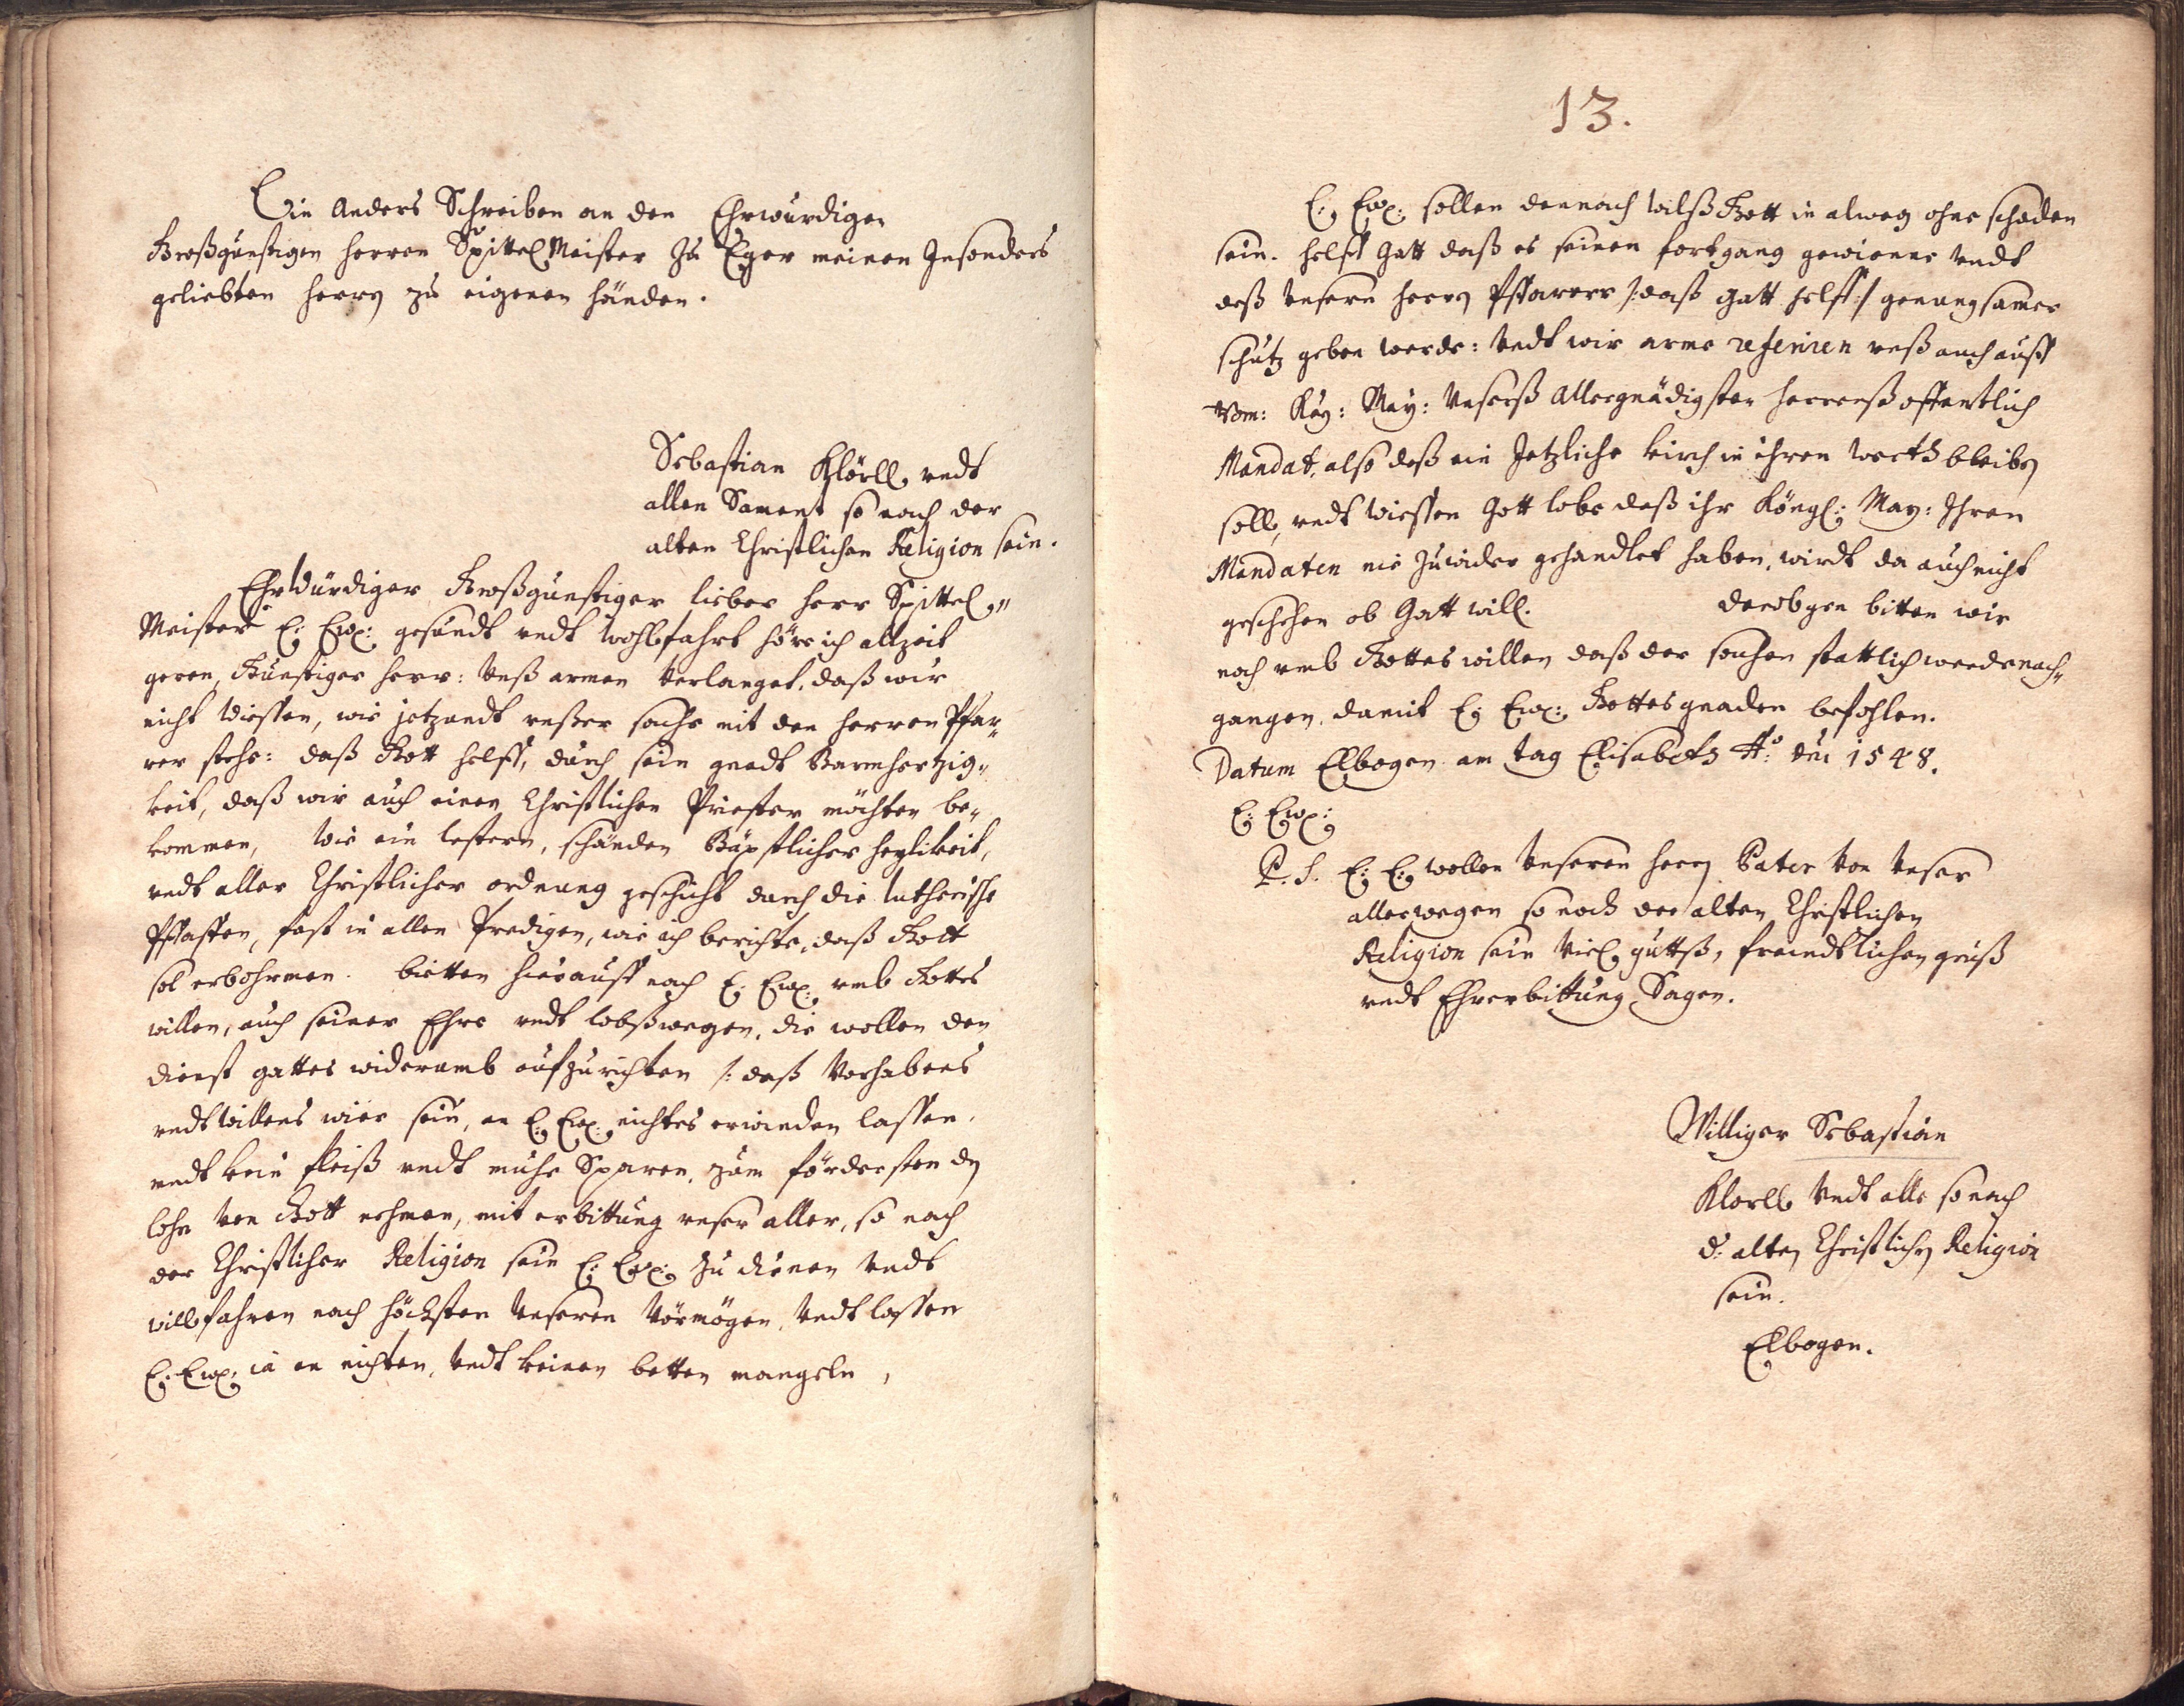 Ein Anders Schreiben an den Ehrwürdigen
Großgünstigen herren Spittel Meister Zu Eger meinen Insonders
geliebten herrn zu eigenen händen.
Sebastian Klörll, undt
allen Sament so nach der
alten Christlichen Religion sein.
Ehrwürdiger Großgünstiger lieber herr Spittel„
Meister E: Ew: gesundt undt wohlfahrt höre ich allzeit
geren, Günstiger herr: Unß armen Verlanget, daß wir
nicht Wiessen, wie jetzundt unßer sache mit den herren Pfar„
rer stehe: daß Gott helff, durch sein gnadt Barmhertzig„
keit, daß wir auch einen Christlichen Priester möchten be„
kommen, Wie ein lestern, schänden Bäpstlicher heylikeit,
undt aller Christlicher ordnung geschicht durch die lutherische
Pfaffen, fast in allen Predigen, wie ich berichte, daß Gott
sol erbohrmen. bietten hierauff noch E: Ew: umb Gottes
willen, auch seiner Ehre undt lobßwegen, die wollen den
dienst gottes widerumb aufzurichten /: daß Vorhabens
undt Willens wier sein, an E: Ew: nichtes erwinden lassen.
undt kein fleiß undt muhe Sparen, zum fördersten dn
lohn Von Gott nehmen, mit erbittung unser aller, so nach
der Christlicher Religion sein E: Ew: Zu dienen Undt
willfahren nach höchsten Unseren Vörmögen, Undt lassen
E: Ew: in en nichten, Undt keinen betten mangeln,
13.
E: Ew: sollen dennoch Wilß Gott in alweg ohne schaden
sein. helff Gott daß es seinen fortgang gewienne Undt
deß Unsern herrn Pffarrers /: daß Gott helff :/ genungsamer
schutz geben werde: Undt wir arme referiren unß auch auff
Röm: Kay: May: Unserß Allergnädigsten herrenß offentlich
Mandat, also daß ein Jetzliche kirch in ihren werth bleibn
soll, undt Wiessen Gott lobe daß ihr Köngl: May: Ihren
Mandaten nie Zuwider gehandlet haben, wirdt da auch nicht
geschehen ob Gott will. derobgen bitten wir
noch umb Gottes willen daß der sachen stattlich werde nach„
gangen. damit E: Ew: Gottes gnaden befohlen.
Datum Elbogen am tag Elisabeth Ao: dni 1548.
E: Ew:
P. S. E: E: wollen Unseren herrn Pater Von Unser
allerwegen so noch der alten Christlichen
Religion sein Viel guttß, freundtlichen gruß
undt Ehrerbittung Sagen.
Williger Sebastian
Klorll Undt alle so nach
d: alten Christlichen Religion
sein.
Elbogen.